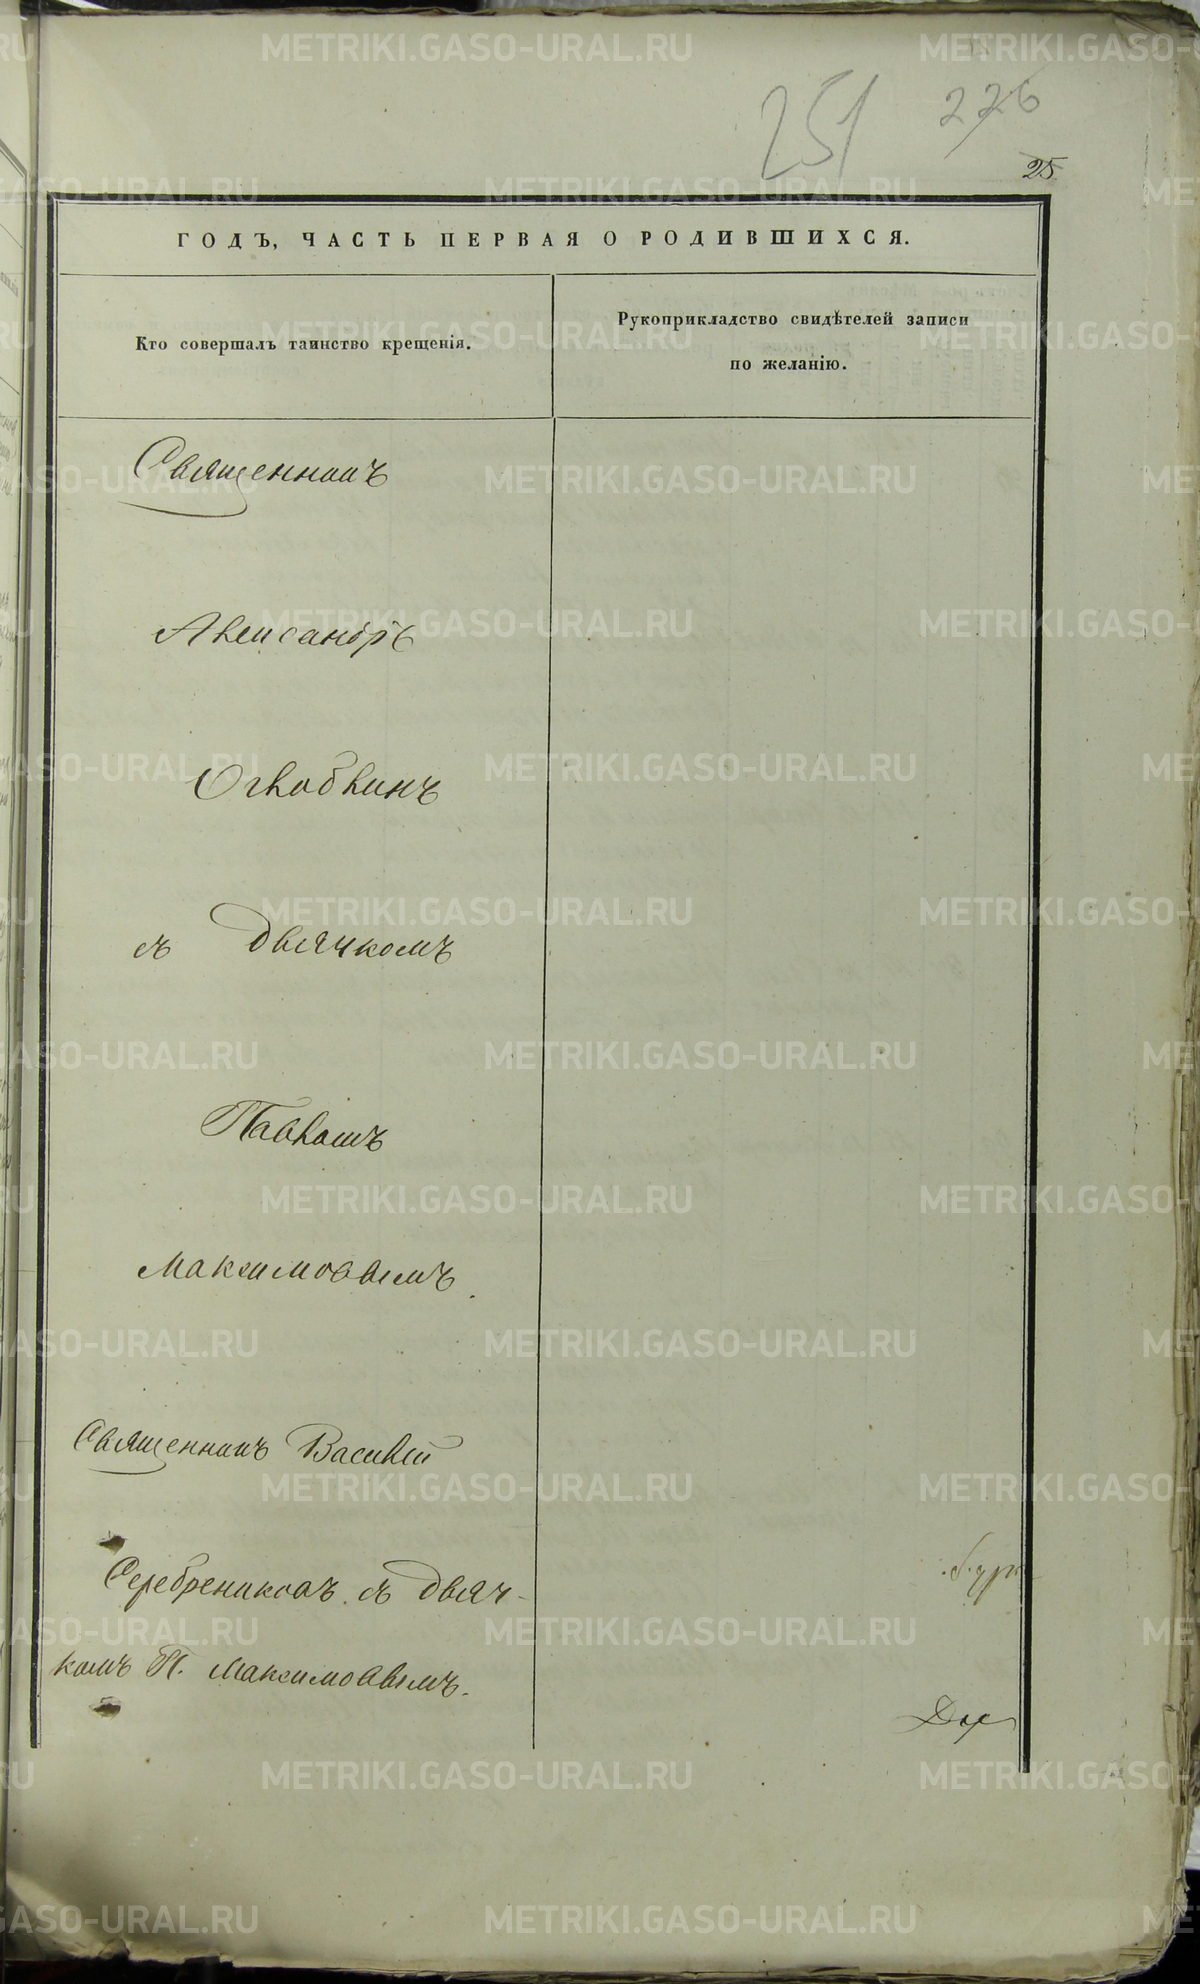 251 226
25
ГОДЪ, ЧАСТЬ ПЕРВАЯ О РОДИВШИХСЯ.
Кто совершалъ таинство крещенія.
Рукоприкладство свидѣтелей записи
по желанію.
Священникъ
Александръ
с Дьячкомъ
Павломъ
Максимовымъ.
Священникъ Василій
Серебрениковъ с Дьяч-
комъ П. Максимовымъ.
METRIKI.GASO-URAL.RU